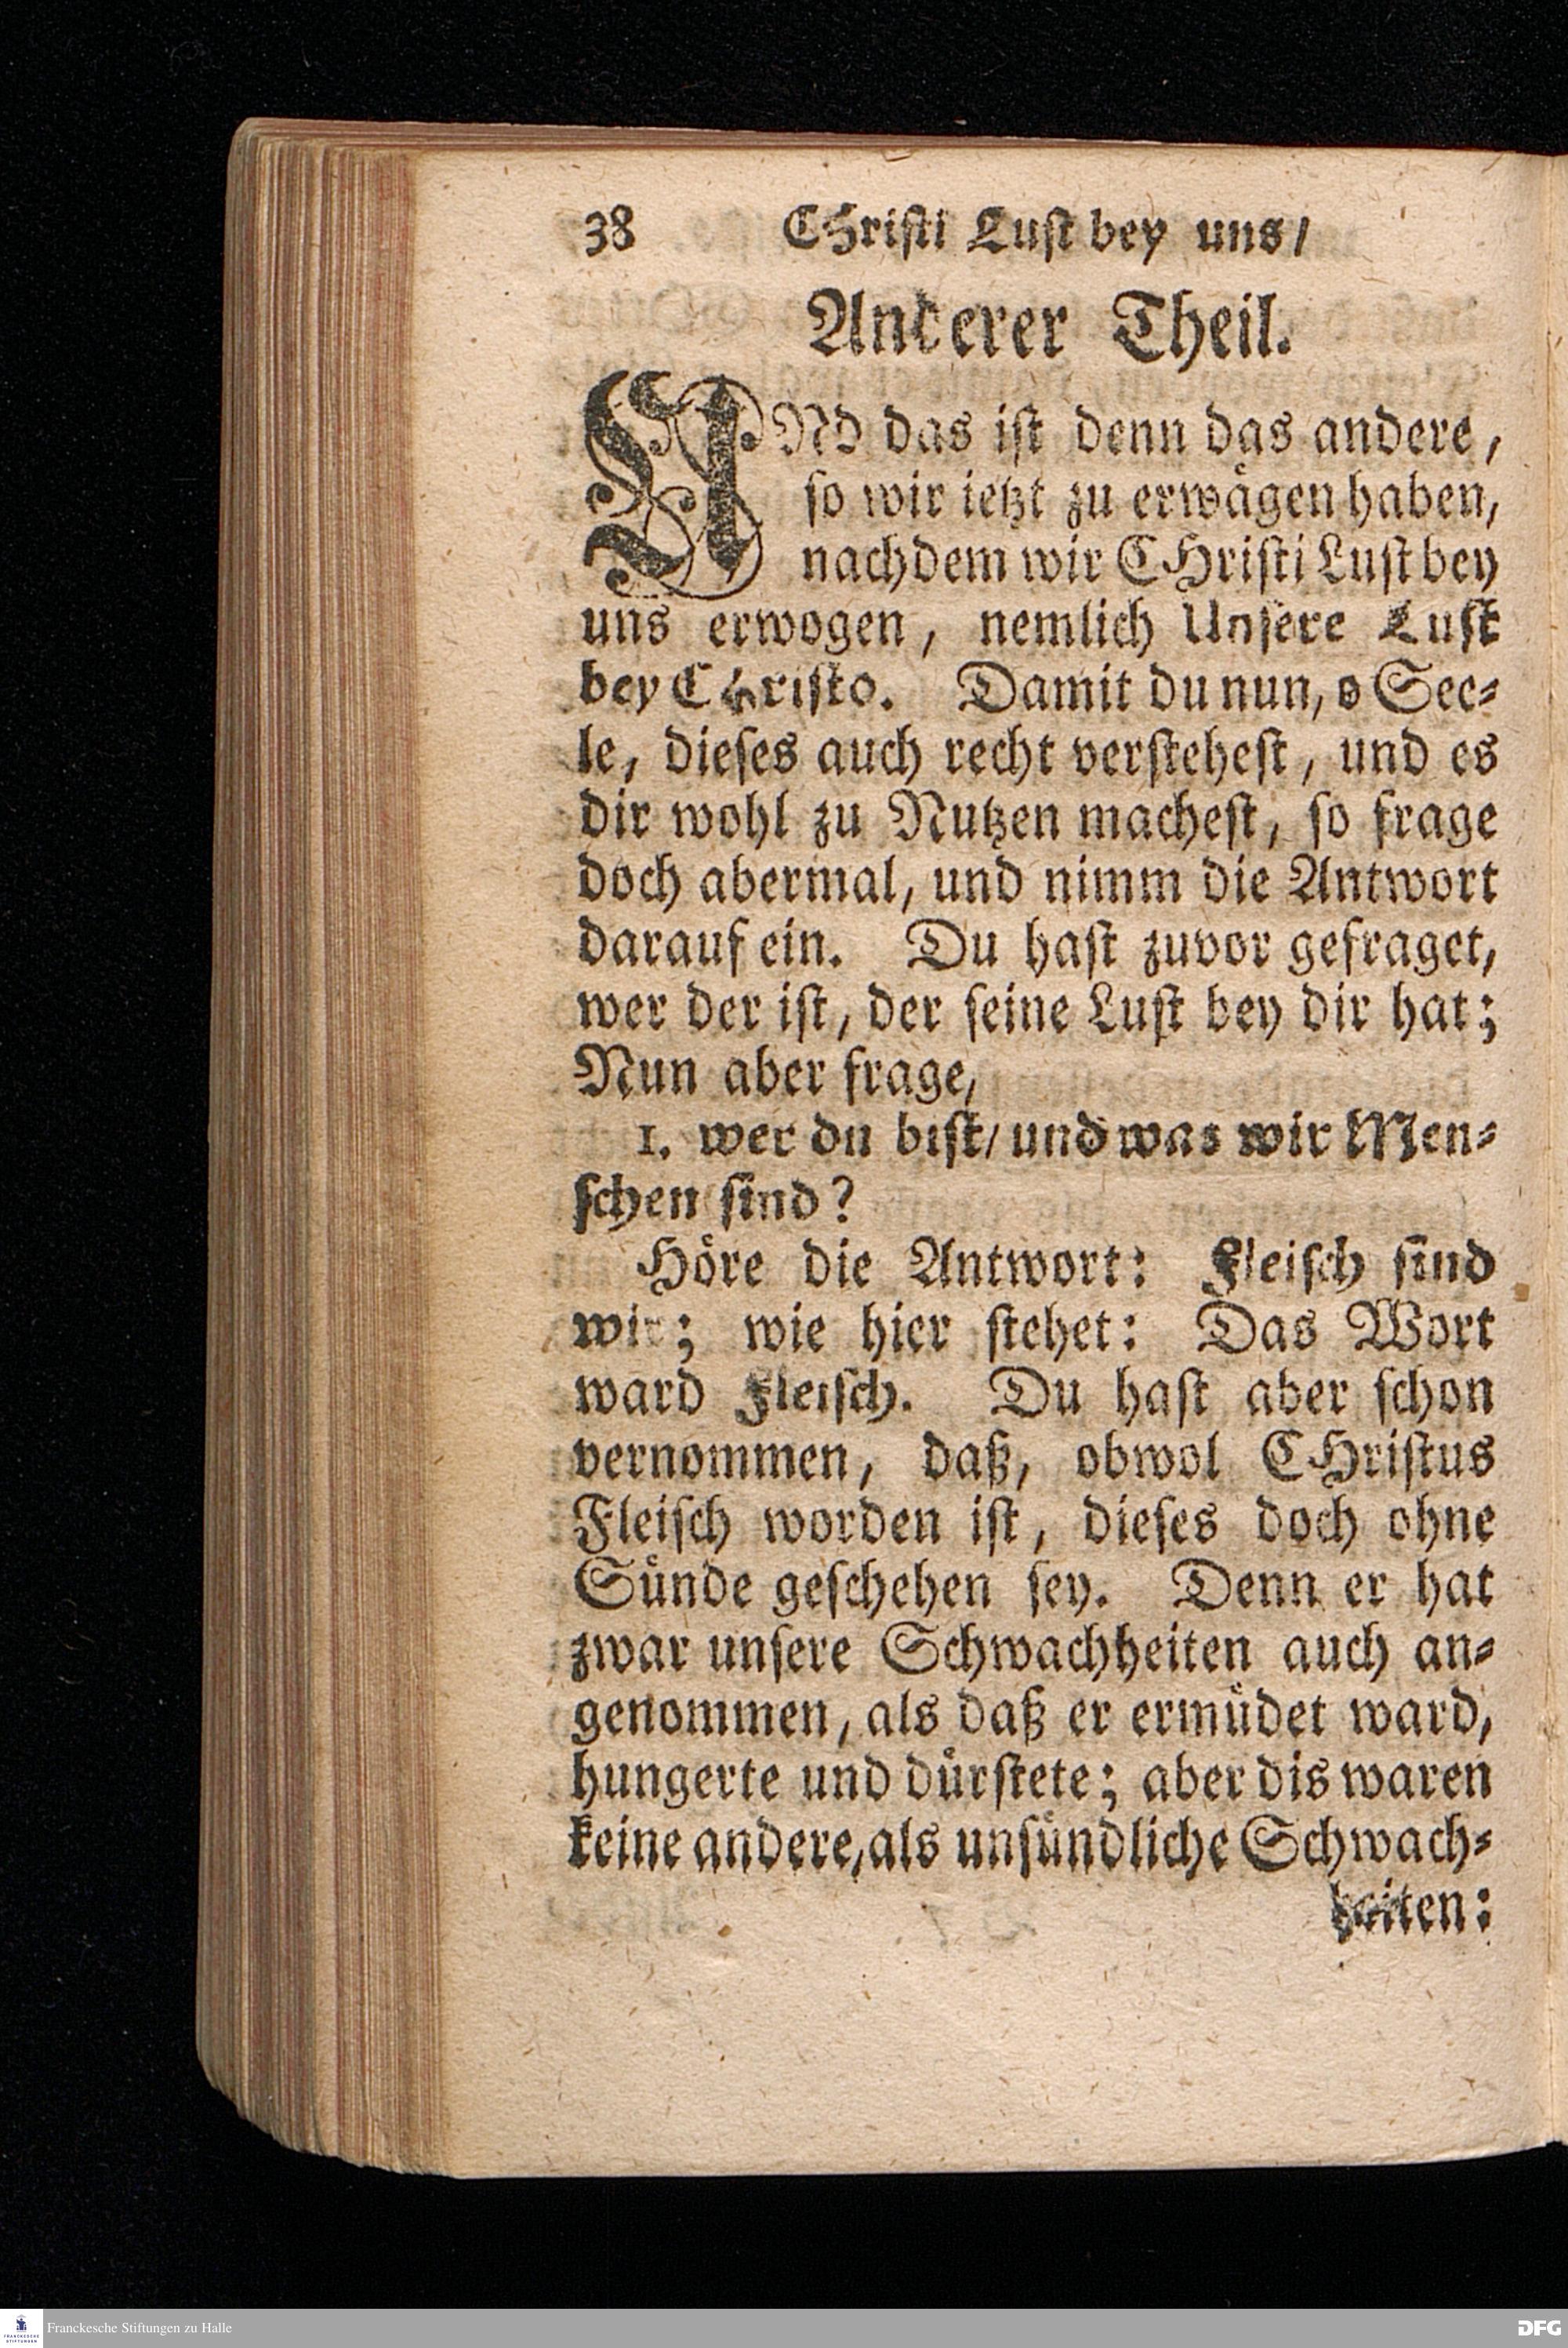 38 CHriſti Luſt bey uns/
Anderer Theil.
UNd das iſt denn das andere,
ſo wir ietzt zu erwägen haben,
nachdem wir CHriſti Luſt bey
uns erwogen, nemlich Unſere Luſt
bey CHriſto. Damit du nun, o See-
le, dieſes auch recht verſteheſt, und es
dir wohl zu Nutzen macheſt, ſo frage
doch abermal, und nimm die Antwort
darauf ein. Du haſt zuvor gefraget,
wer der iſt, der ſeine Luſt bey dir hat;
Nun aber frage,
1. wer du biſt/ und was wir Men-
ſchen ſind?
Höre die Antwort: Fleiſch ſind
wir; wie hier ſtehet: Das Wort
ward Fleiſch. Du haſt aber ſchon
vernommen, daß, obwol CHriſtus
Fleiſch worden iſt, dieſes doch ohne
Sünde geſchehen ſey. Denn er hat
zwar unſere Schwachheiten auch an-
genommen, als daß er ermüdet ward,
hungerte und dürſtete; aber dis waren
keine andere, als unſündliche Schwach-
heiten:
Franckesche Stiftungen zu Halle
DFG